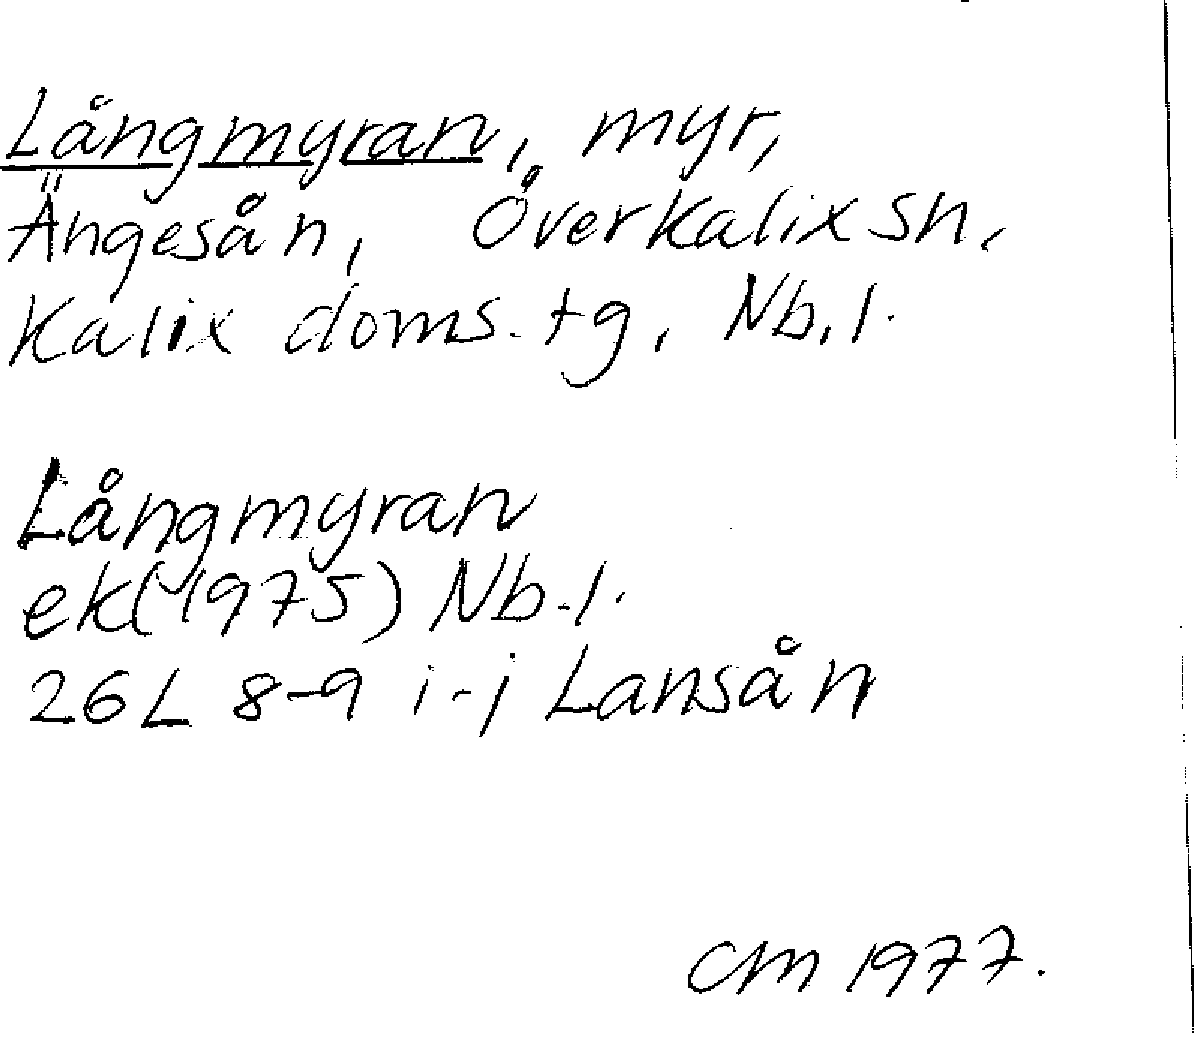 Långmyran, myr,
Ängesån, Överkalix sn,
Kalix doms. tg, Nb.l.
Långmyran
ek(1975) Nb.l.
26L 8-9 i-j Lansån
CM 1977.